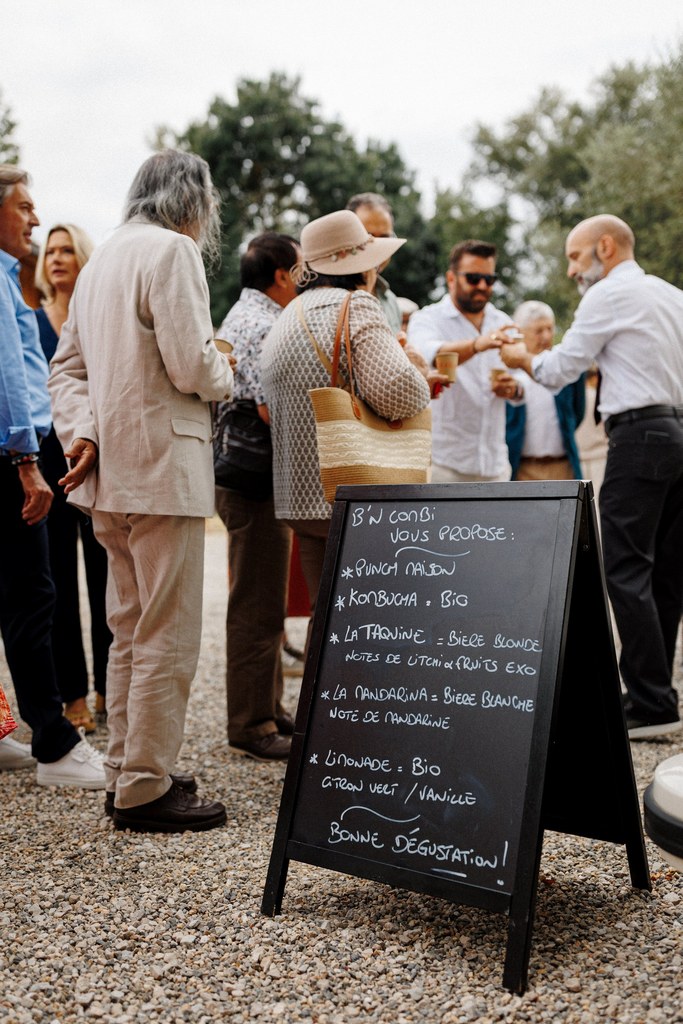 B'N COMBI
VOUS PROPOSE :
* PUNCH MAISON
* KOMBUCHA = BIO
* LA TAQUINE = BIERE BLONDE
NOTES DE LITCHI & FRUITS EXO
* LA MANDARINA = BIERE BLANCHE
NOTE DE MANDARINE
* LIMONADE = BIO
CITRON VERT / VANILLE
BONNE DÉGUSTATION !